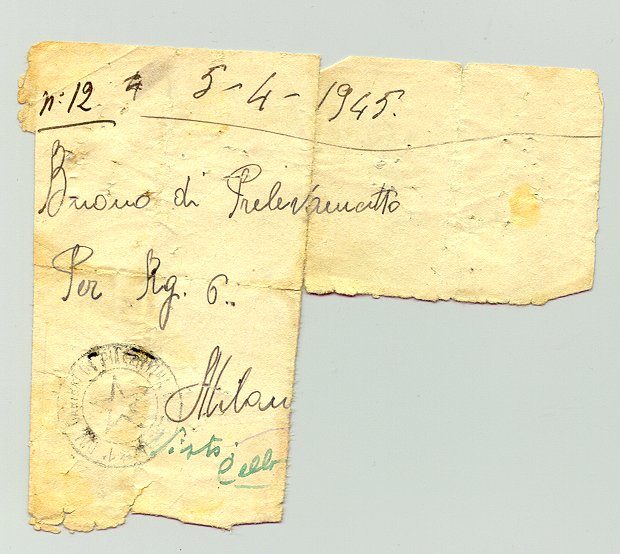 n: 12 4 5-4-1945.
Buono di Prelevamento
Per Kg. 6..
Milan
Visto